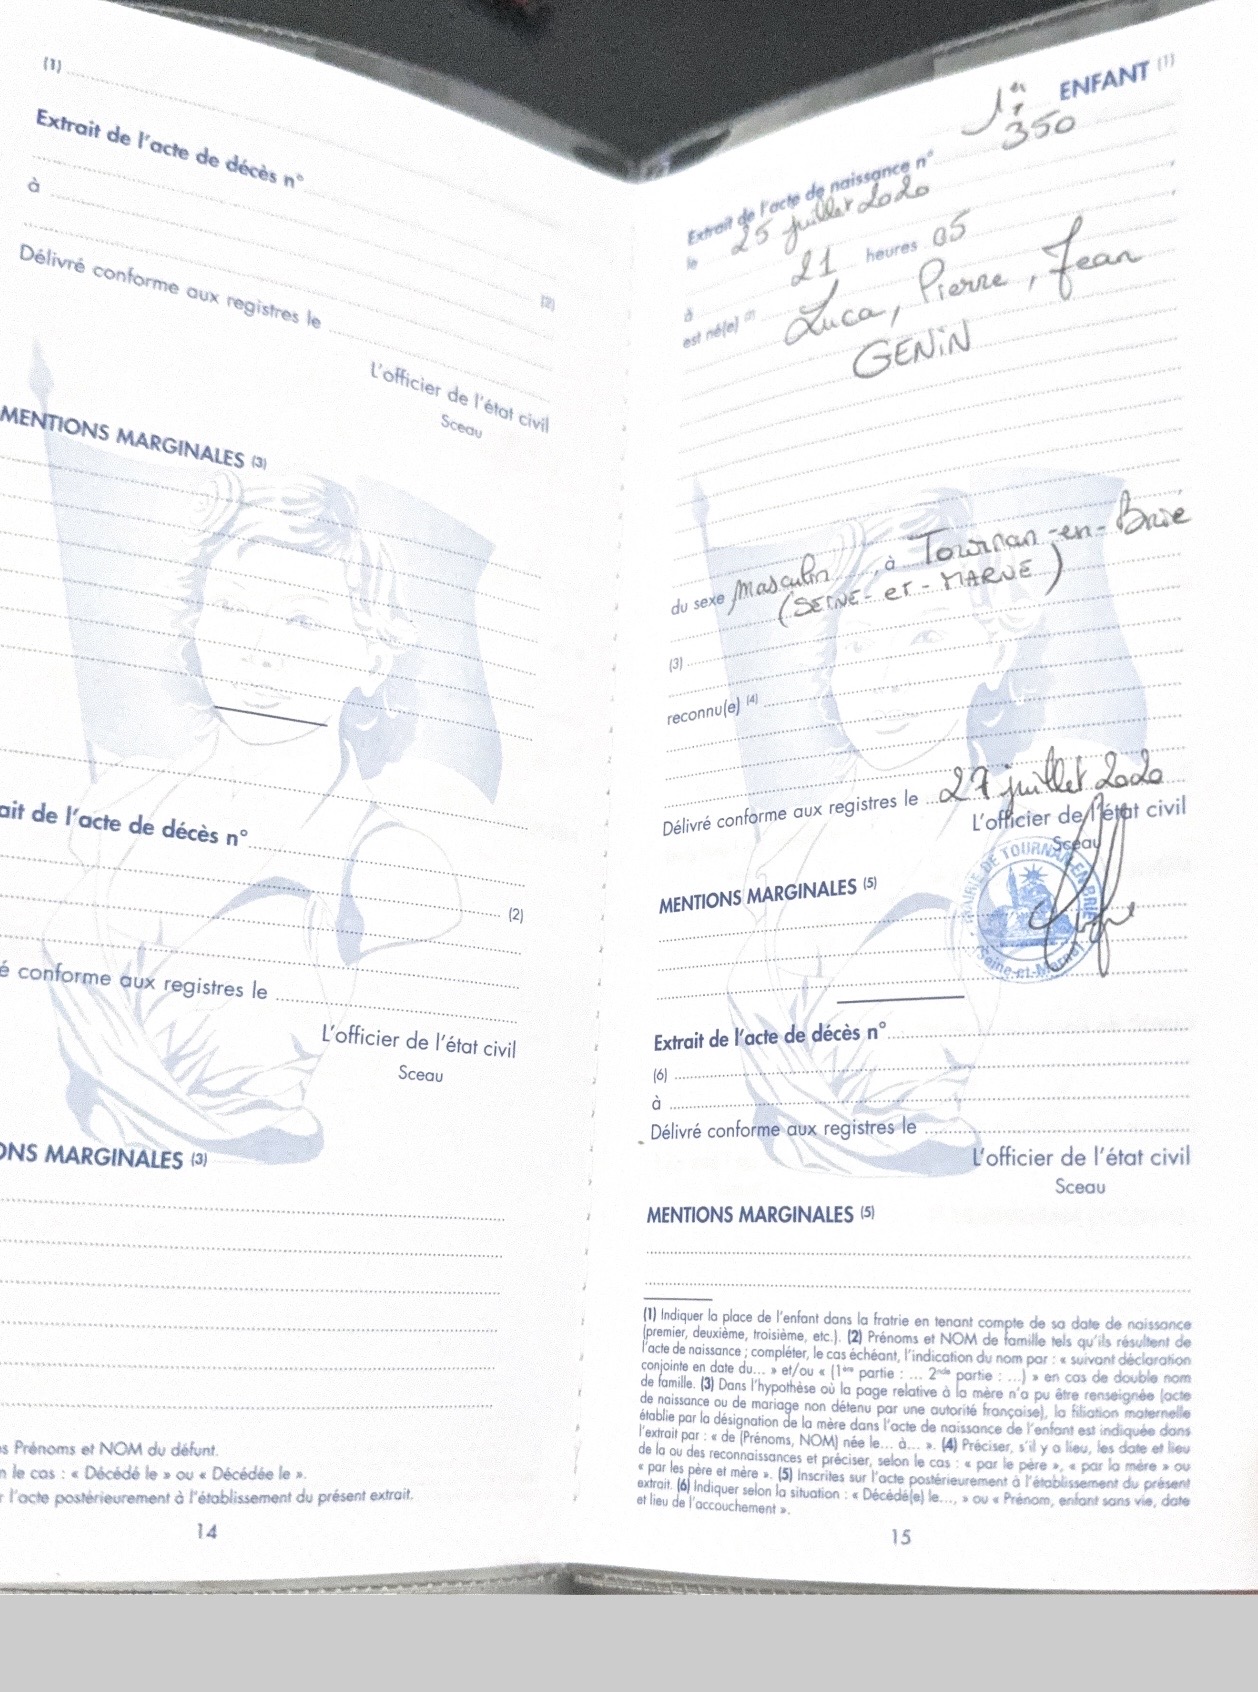 (1)
Extrait de l'acte de décès n°
à
(2)
Délivré conforme aux registres le
L'officier de l'état civil
Sceau
MENTIONS MARGINALES (3)
ait de l'acte de décès n°
(2)
é conforme aux registres le
L'officier de l'état civil
Sceau
ONS MARGINALES (3)
s Prénoms et NOM du défunt.
n le cas : « Décédé le » ou « Décédée le ».
r l'acte postérieurement à l'établissement du présent extrait.
14
1er ENFANT (1)
Extrait de l'acte de naissance n° 350
le 25 juillet 2020
à 21 heures 05
est né(e) (2) Luca, Pierre, Jean
GENiN
du sexe Masculin, à Tournan-en-Brie
(SEINE-et-MARNE)
(3)
reconnu(e) (4)
Délivré conforme aux registres le 27 juillet 2020
L'officier de l'état civil
Sceau
MAIRIE DE TOURNAN-EN-BRIE
(Seine-et-Marne)
MENTIONS MARGINALES (5)
Extrait de l'acte de décès n°
(6)
à
Délivré conforme aux registres le
L'officier de l'état civil
Sceau
MENTIONS MARGINALES (5)
(1) Indiquer la place de l'enfant dans la fratrie en tenant compte de sa date de naissance
(premier, deuxième, troisième, etc.). (2) Prénoms et NOM de famille tels qu'ils résultent de
l'acte de naissance ; compléter, le cas échéant, l'indication du nom par : « suivant déclaration
conjointe en date du... » et/ou « (1ère partie : ... 2nde partie : ...) » en cas de double nom
de famille. (3) Dans l'hypothèse où la page relative à la mère n'a pu être renseignée (acte
de naissance ou de mariage non détenu par une autorité française), la filiation maternelle
établie par la désignation de la mère dans l'acte de naissance de l'enfant est indiquée dans
l'extrait par : « de (Prénoms, NOM) née le... à... ». (4) Préciser, s'il y a lieu, les date et lieu
de la ou des reconnaissances et préciser, selon le cas : « par le père », « par la mère » ou
« par les père et mère ». (5) Inscrites sur l'acte postérieurement à l'établissement du présent
extrait. (6) Indiquer selon la situation : « Décédé(e) le..., » ou « Prénom, enfant sans vie, date
et lieu de l'accouchement ».
15